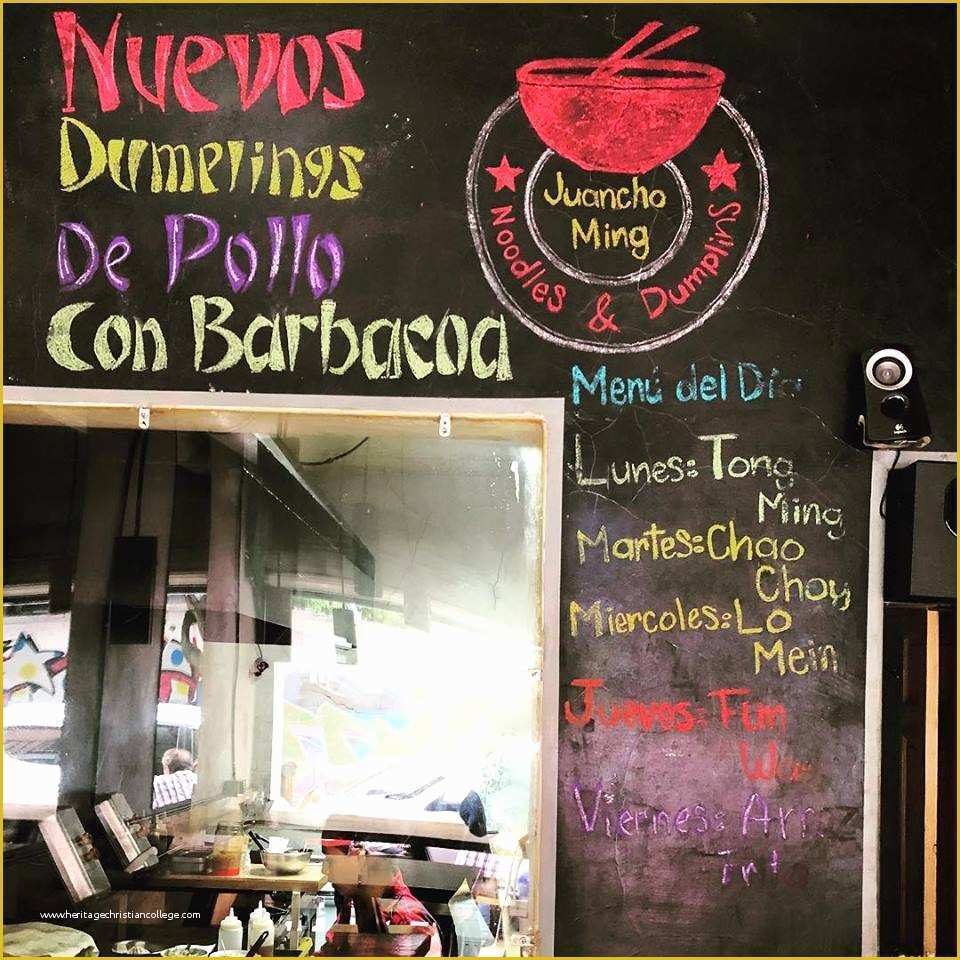 Nuevos
Dumplings
De Pollo
Con Barbacoa
Juancho
Ming
Noodles & Dumplins
Menú del Día
Lunes: Tong
Ming
Martes: Chao
Choy
Miercoles: Lo
Mein
Juevos: Fum
Viernes:
www.heritagechristiancollege.com